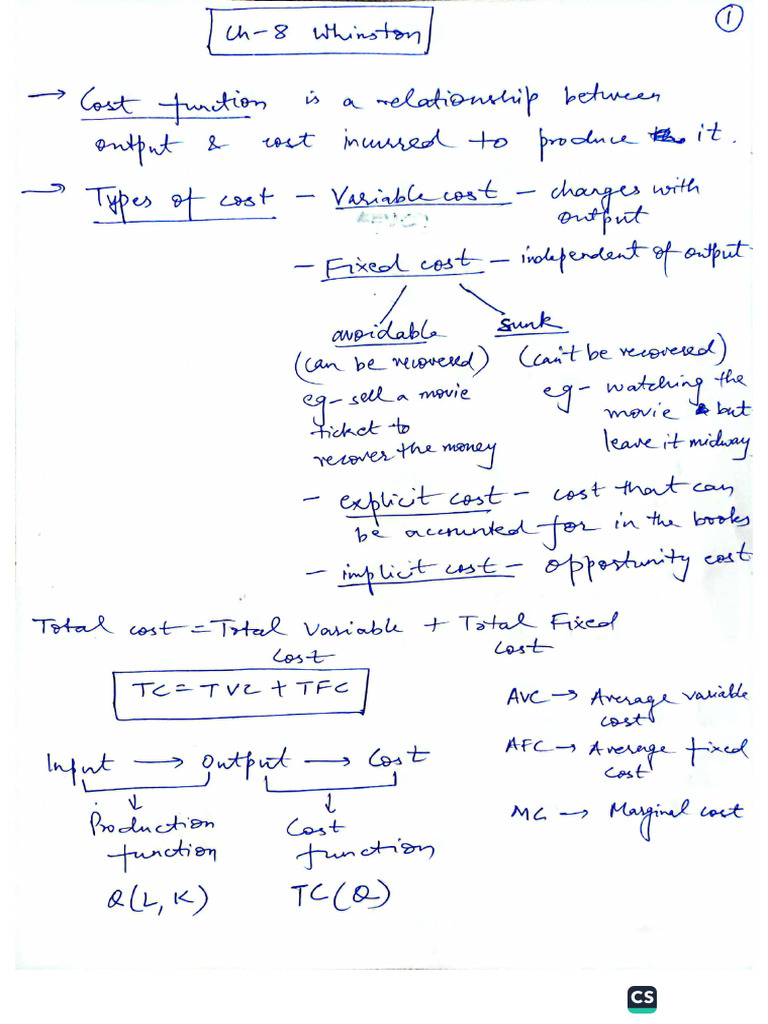 Ch-8 Whinston
1
→ Cost function is a relationship between
output & cost incurred to produce it.
→ Types of cost - Variable cost - changes with
output
- Fixed cost - independent of output
avoidable sunk
(can be recovered) (can't be recovered)
eg- sell a movie eg- watching the
ticket to movie but
recover the money leave it midway
- explicit cost - cost that can
be accounted for in the books
- implicit cost - opportunity cost
Total cost = Total Variable + Total Fixed
cost cost
TC = TVC + TFC
AVC → Average variable
cost
AFC → Average fixed
cost
MC → Marginal cost
Input → Output → Cost
Production Cost
function function
Q(L, K) TC(Q)
CS